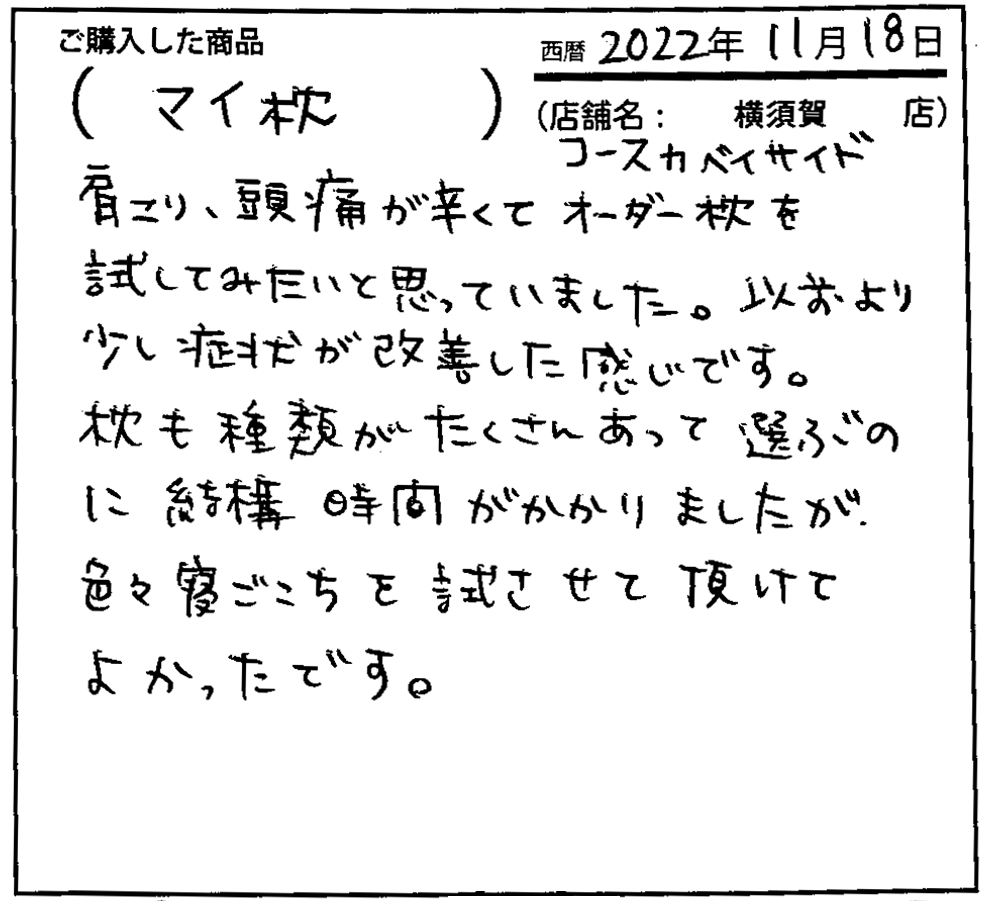 ご購入した商品
西暦 2022年 11月18日
( マイ枕 )
(店舗名: 横須賀 店)
コースカベイサイド
肩こり、頭痛が辛くて オーダー枕を
試してみたいと思っていました。以前より
少し症状が改善した感じです。
枕も種類がたくさんあって選ぶの
に結構時間がかかりましたが
色々寝ごこちを試させて頂けて
よかったです。